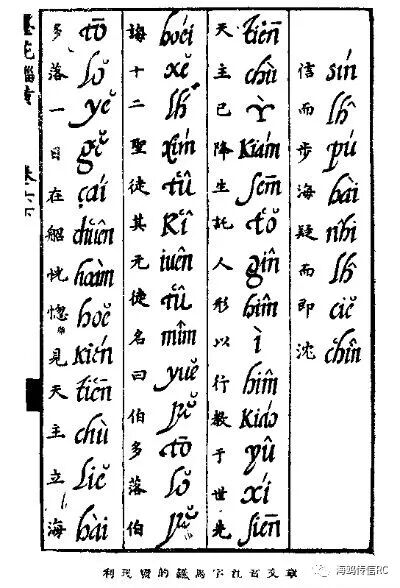 信而步海疑而即沈
sín lh̑ pú hài nhî lh̑ ciĕ chîn
天主已降生託人形以行教于世先
tiēn chù ỳ kiám sēm tŏ gîn hîm ì hîm kiáo yû xí siēn
誨十二聖徒其元徒名曰伯多落伯
hoéi xĕ lh́ xím tû kî iuên tû mîm yuĕ pĕ tō lŏ pĕ
多落一日在船恍惚見天主立海
tō lŏ yĕ gĕ çái chuên hoàm hoĕ kién tiēn chù liĕ hài
墨苑緇黃 卷六下
利瑪竇的羅馬字注音文章
海鸥传信RC